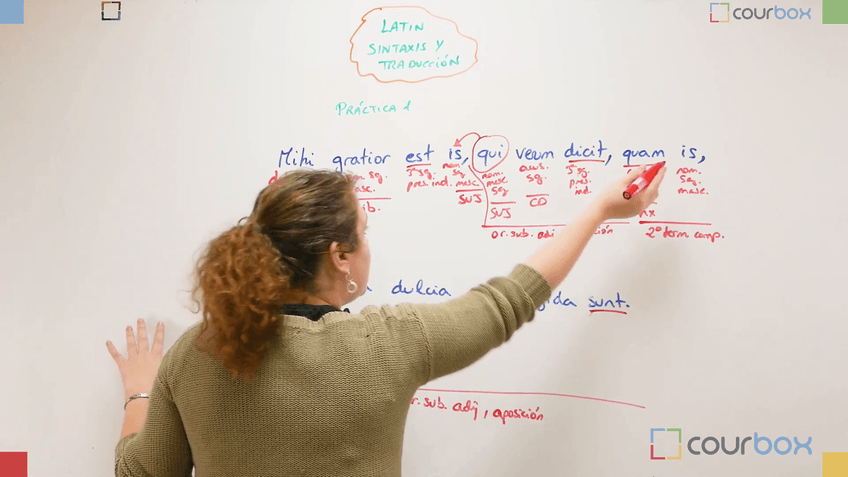 courbox
LATIN
SINTAXIS Y
TRADUCCIÓN
PRÁCTICA 1
Mihi gratior est is, qui verum dicit, quam is,
3ª sg. nom. sg. nom. acus. 3ª sg. nom.
pres. ind. masc. masc. sg. sg. pres. ind. sg. masc.
SUJ SUJ CD nx
or. sub. adj 2º term comp.
dulcia sunt.
r. sub. adj, aposición
courbox